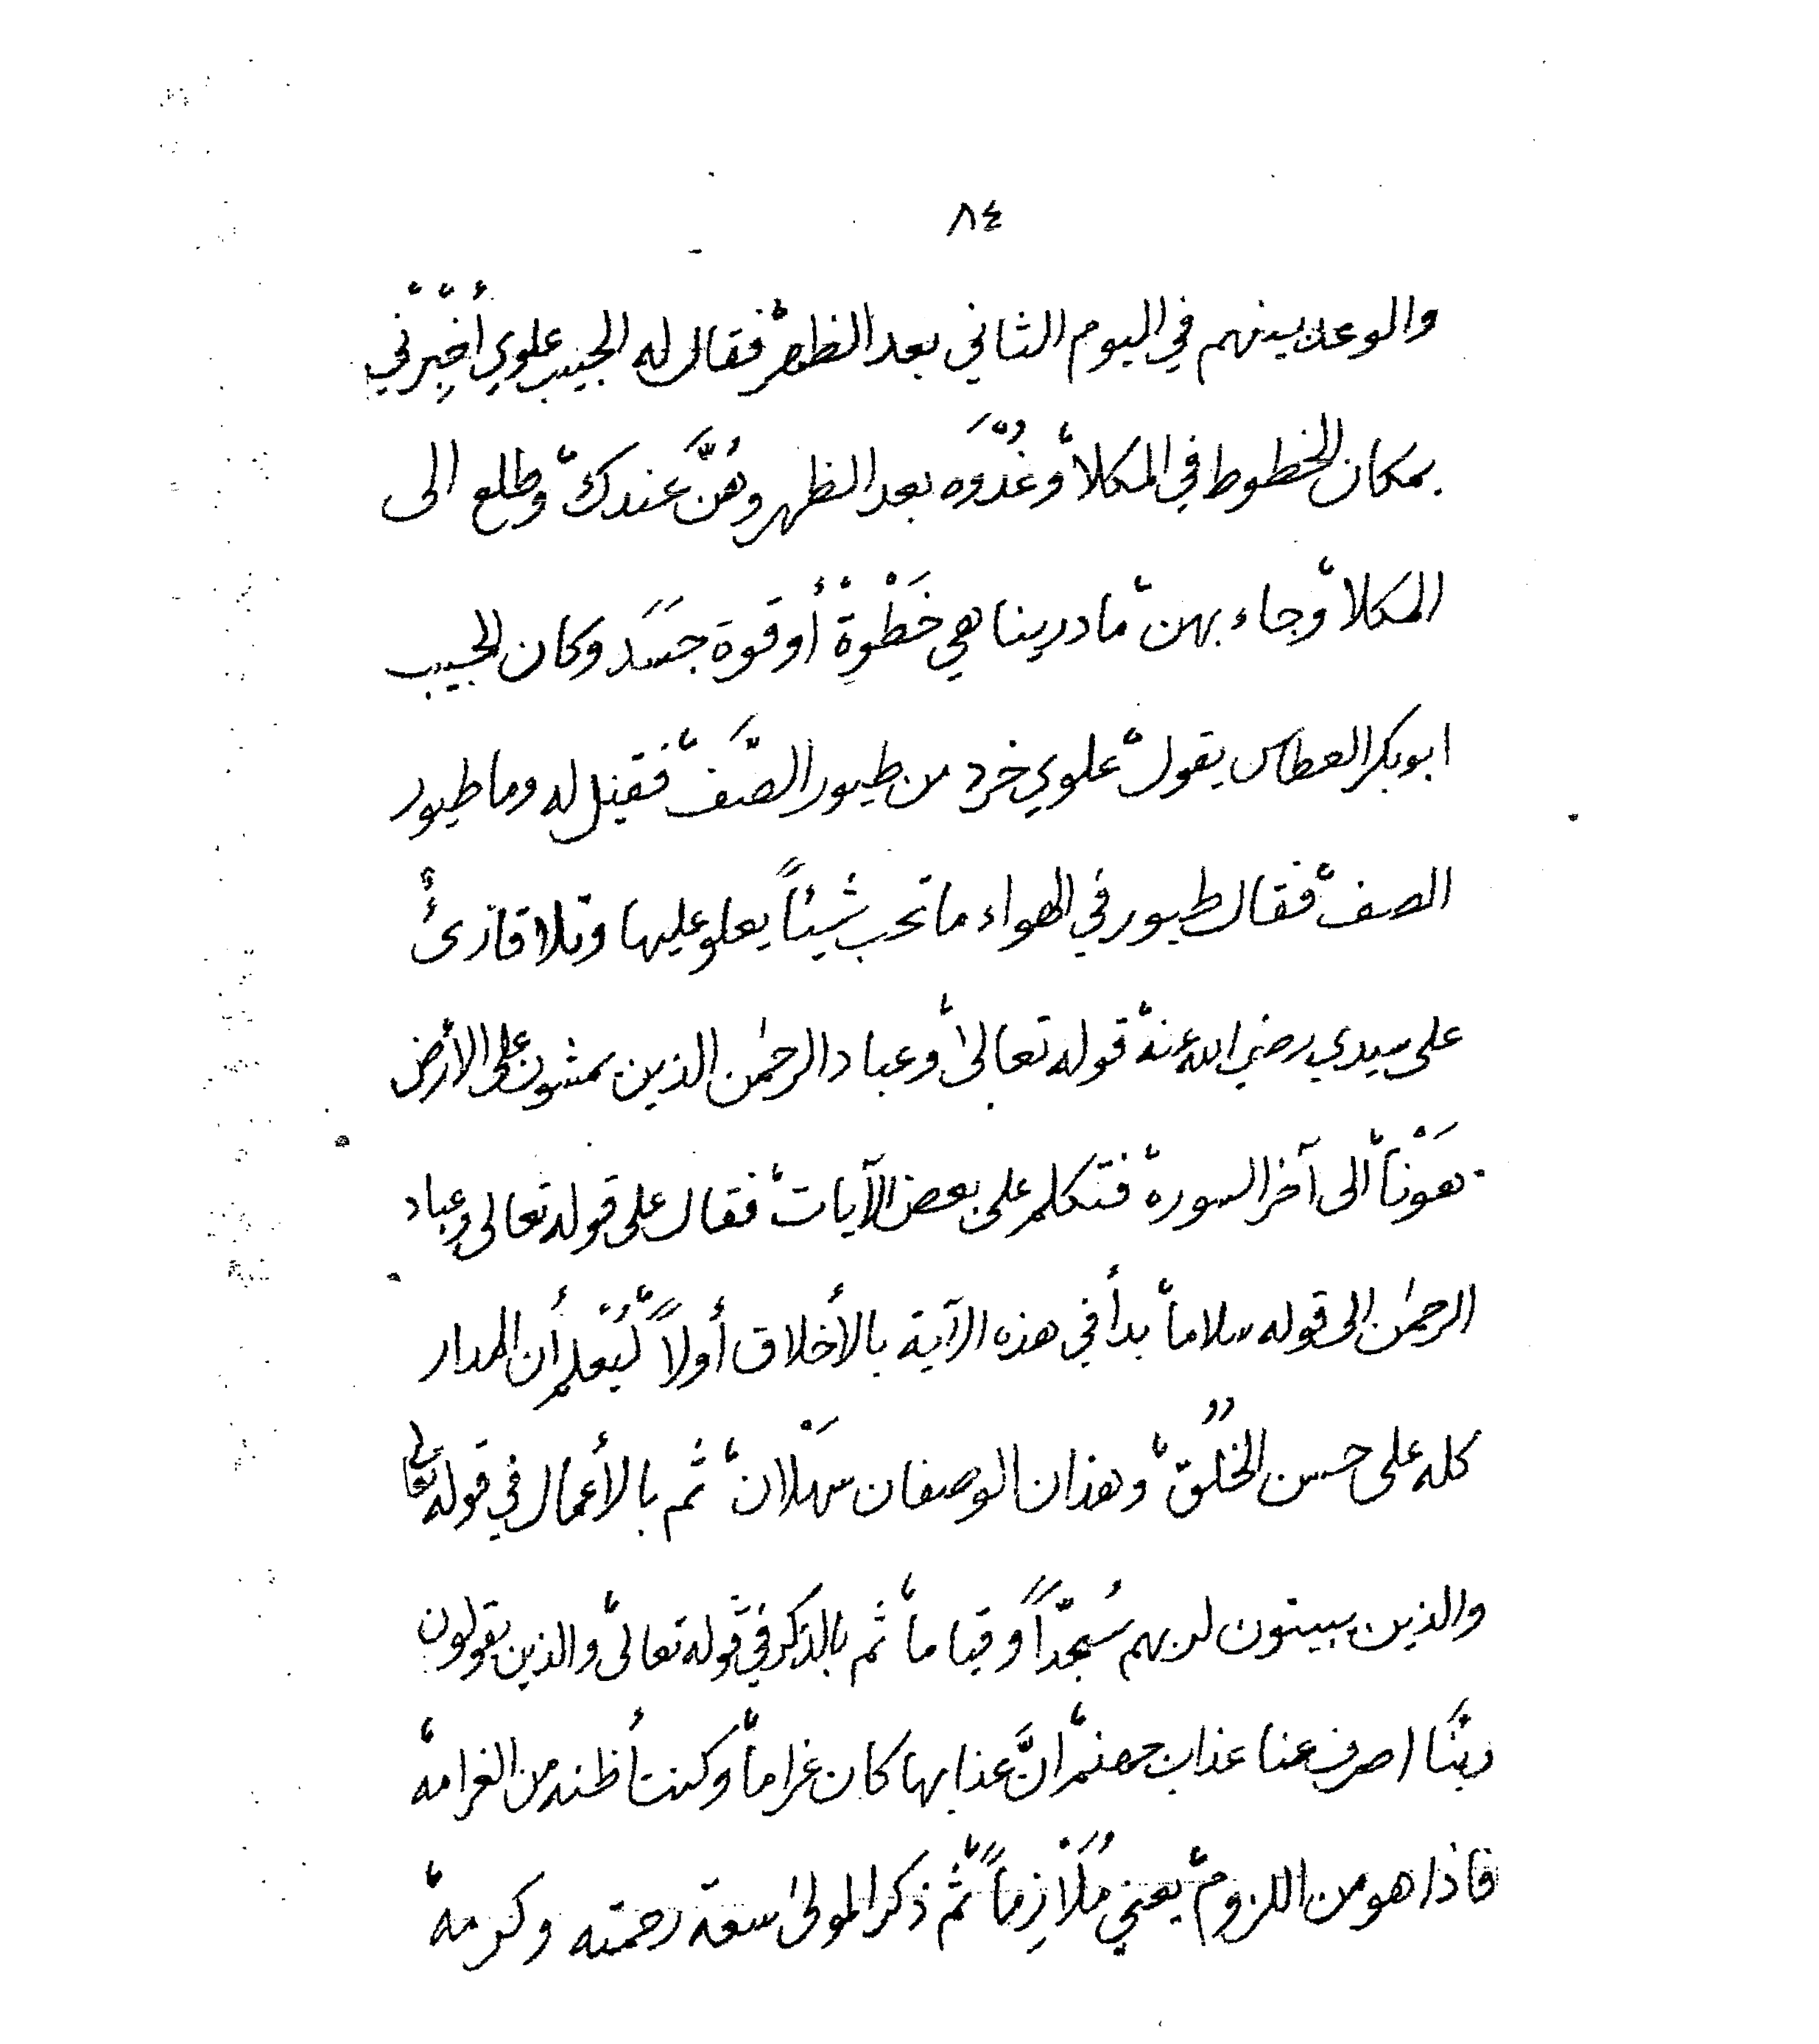 ٨٤
والوعد بينهم في اليوم الثاني بعد الظهر، فقال له الحبيب علوي، أخْبِرْني
بمكان الخطوط في المكلا، وغُدْوَه بعد الظهر وهُنَّ عندك، وطلع الى
المكلا، وجاء بهن، ما درينا هي خَطْوِة، أو قوة جسَد وكان الحبيب
ابوبكر العطاس يقول، علوي خرد من طيور الصَّف، فقيل له وما طيور
الصف، فقال طيور في الهواء ما تحب شيئاً يعلو عليها وتلا قارئُ
على سيدي رضي الله عنه، قوله تعالىٰ، وعباد الرحمٰن الذين يمشون على الأرض
هَوْناً، الى آخر السورة، فتكلم على بعض الآيات، فقال على قوله تعالى وعباد
الرحمٰن الى قوله سلاماً، بدأ في هذه الآية بالأخلاق أولاً، ليُعْلِم أن المدار
كله على حسن الخُلُق، وهذان الوصفان سَهْلان، ثم بالأعمال في قوله تعالى
والذين يبيتون لربهم سُجَّداً وقياماً، ثم بالذكر في قوله تعالى، والذين يقولون
ربَّنا اصرف عنا عذاب جهنم، انَّ عذابها كان غراماً، وكنت أظنه من الغرامه،
فاذا هو من اللزوم، يعني مُلَازِماً، ثم ذكر المولىٰ سعة رحمته وكرمه،